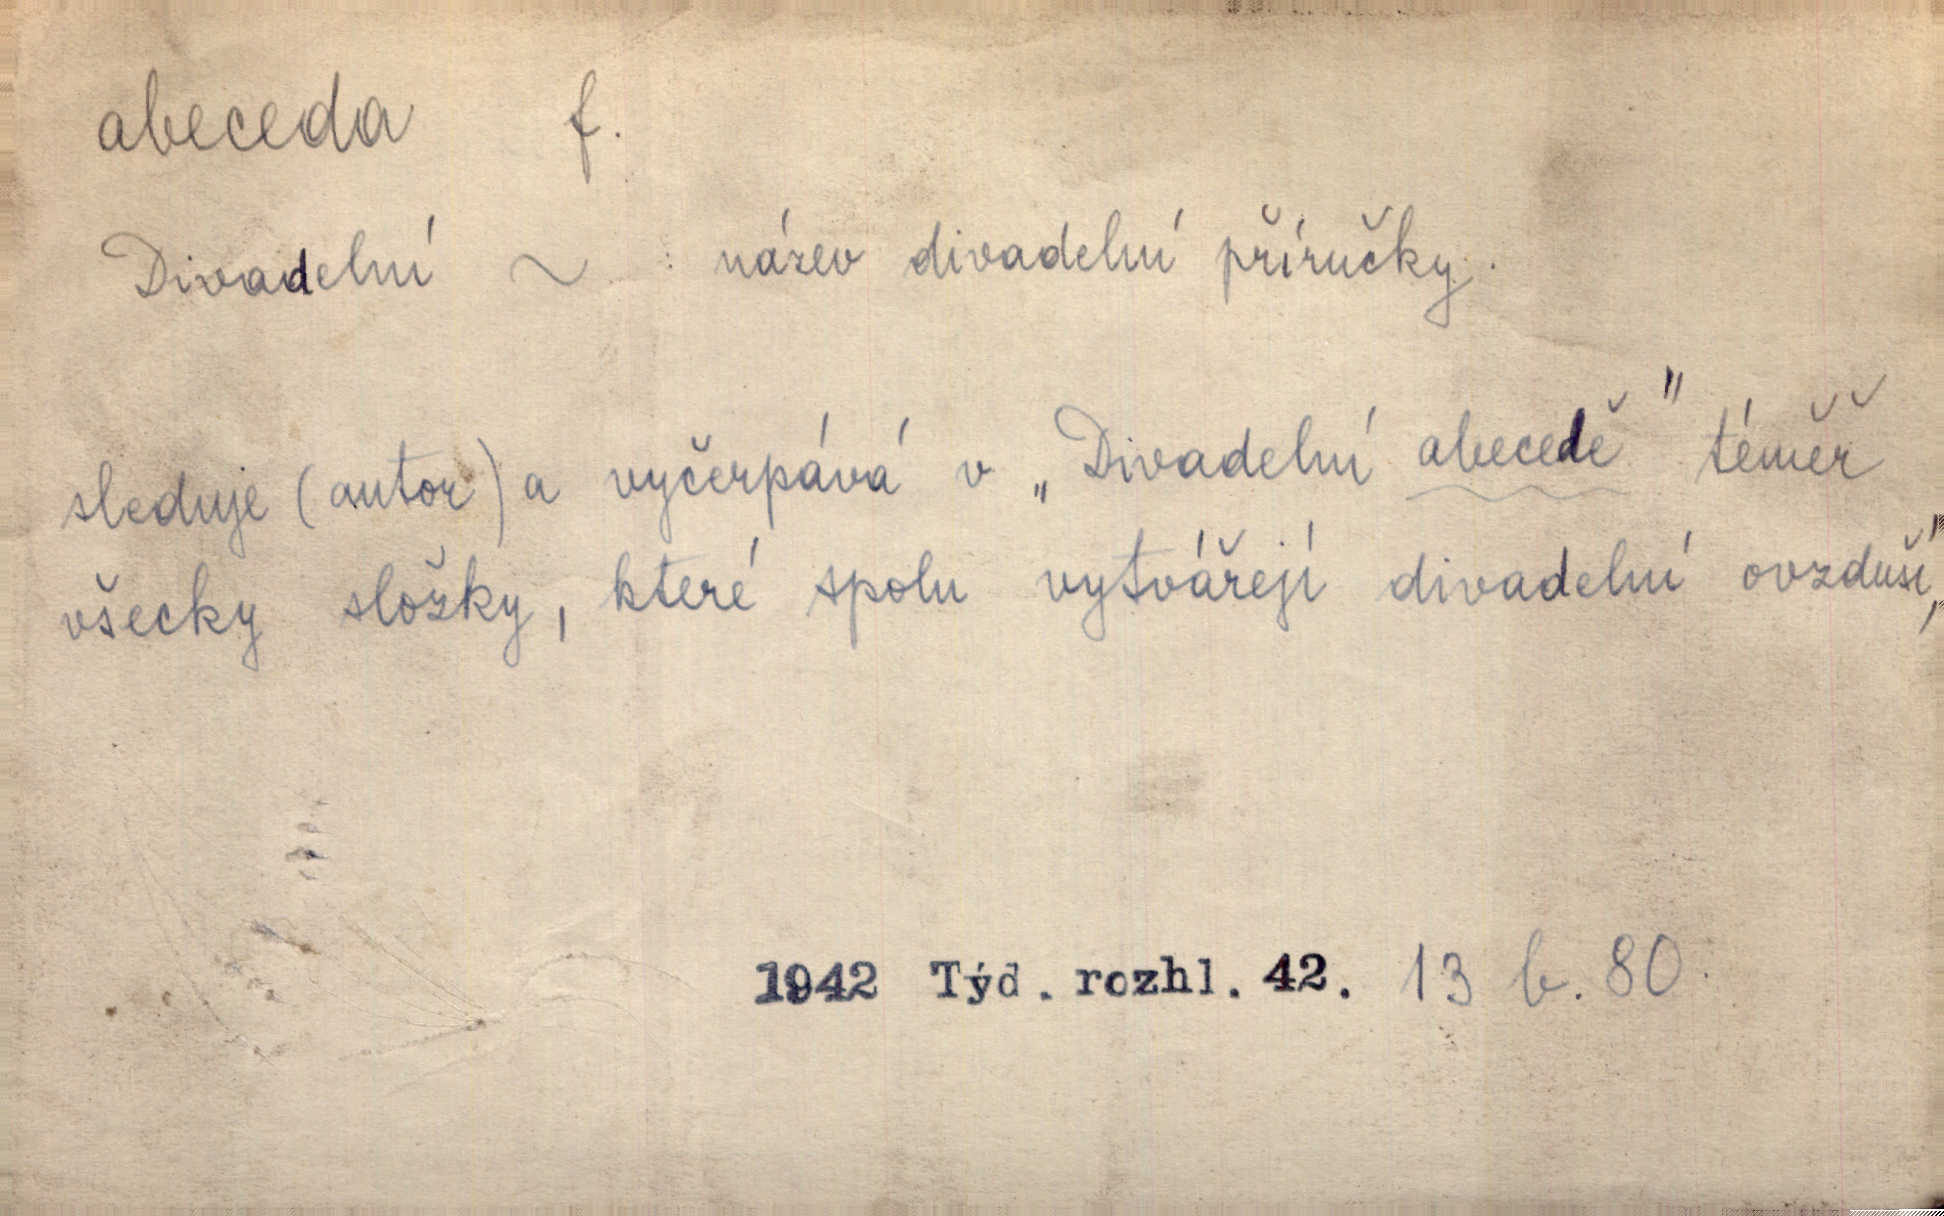 abeceda f.
Divadelní ~ : název divadelní příručky.
sleduje (autor) a vyčerpává v „Divadelní abecedě" téměř
všecky složky, které spolu vytvářejí divadelní ovzduší,
1942 Týd. rozhl. 42. 13 b. 80.